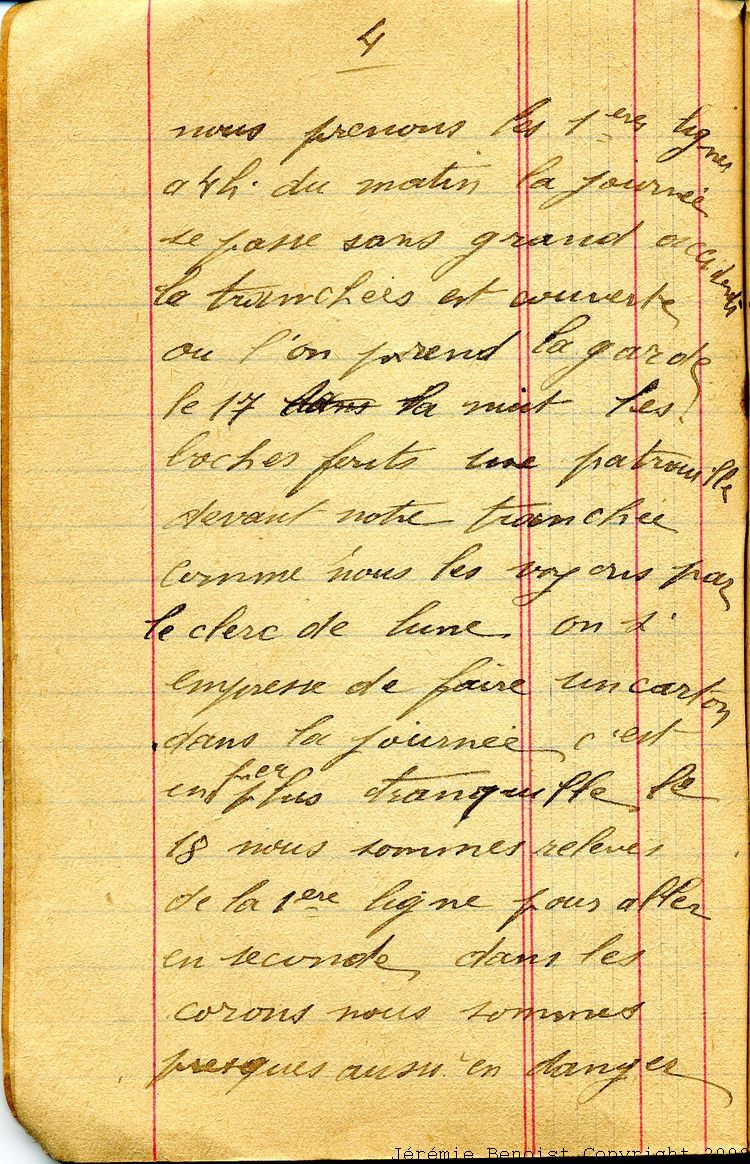 4
nous prenons les 1ères lignes
a 4h. du matin la journée
se passe sans grand occidents
le tranchées est couverte
ou l'on prend la garde
le 17 dans la nuit les
boches fonts une patrouille
devant notre tranchée
comme nous les voyons par
le clerc de lune on s'
empresse de faire un carton
dans la journée c'est
un peu plus tranquille le
18 nous sommes relevés
de la 1ere ligne pour aller
en seconde dans les
corons nous sommes
presques aussi en danger
Jérémie Benoist Copyright